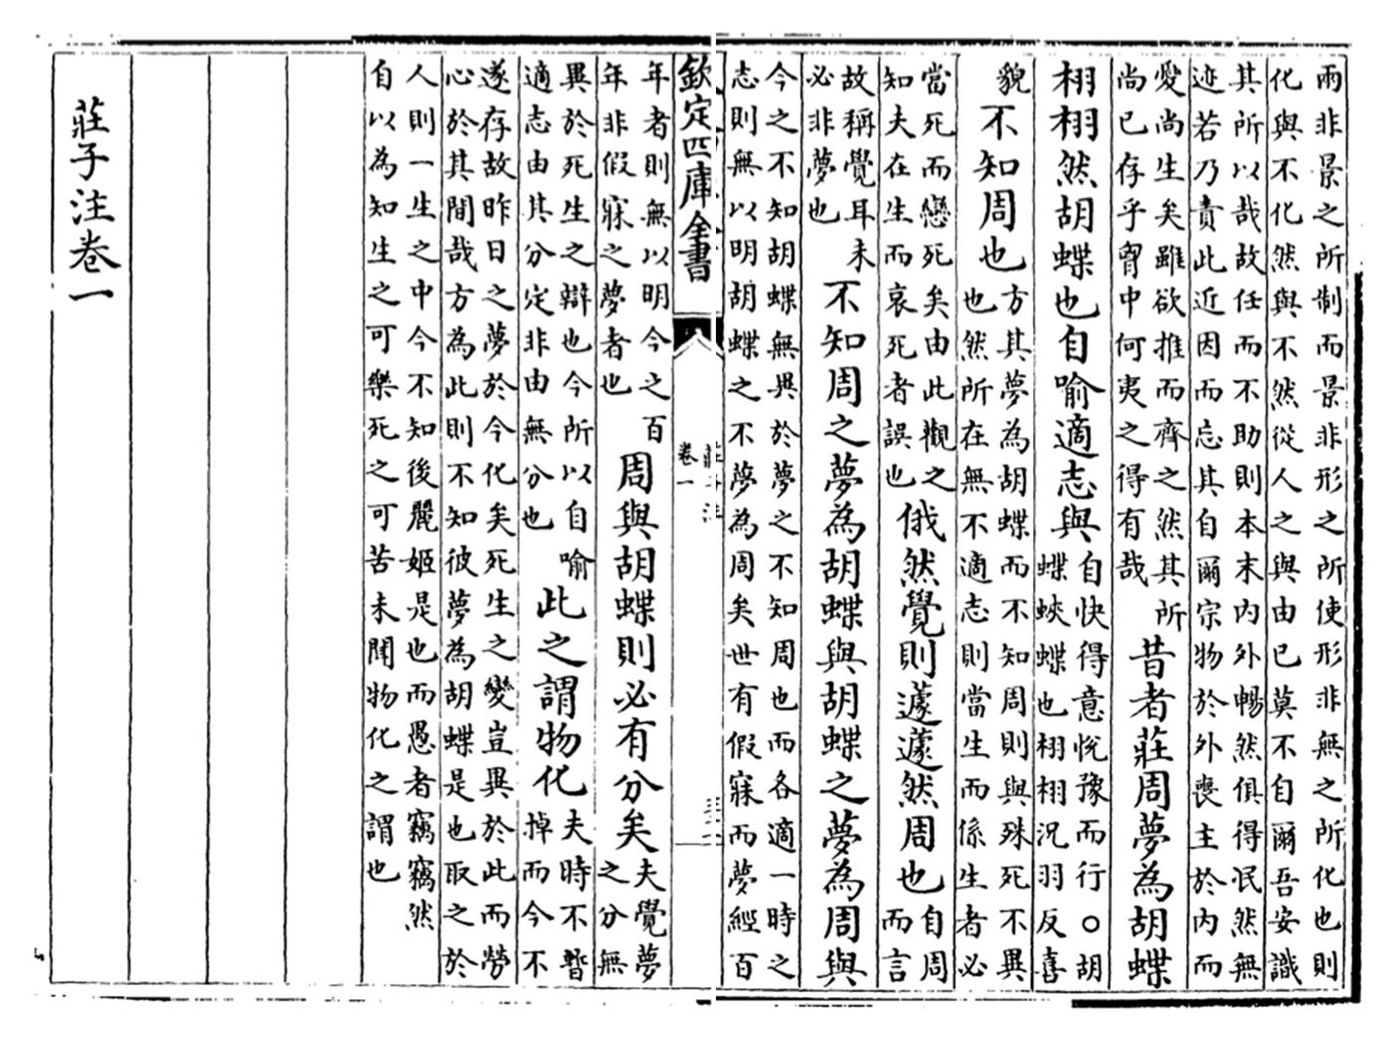 兩非景之所制而景非形之所使形非無之所化也則
化與不化然與不然從人之與由已莫不自爾吾安識
其所以哉故任而不助則本末内外暢然俱得泯然無
迹若乃責此近因而忘其自爾宗物於外喪主於内而
愛尚生矣雖欲推而齊之然其所
尚已存乎胷中何夷之得有哉
昔者莊周夢為胡蝶
栩栩然胡蝶也自喻適志與
自快得意悅豫而行○胡
蝶蛺蝶也栩栩況羽反喜
貌
不知周也
方其夢為胡蝶而不知周則與殊死不異
也然所在無不適志則當生而係生者必
當死而戀死矣由此觀之
知夫在生而哀死者誤也
俄然覺則蘧蘧然周也
自周
而言
故稱覺耳未
必非夢也
不知周之夢為胡蝶與胡蝶之夢為周與
今之不知胡蝶無異於夢之不知周也而各適一時之
志則無以明胡蝶之不夢為周矣世有假寐而夢經百
欽定四庫全書
卷一
年者則無以明今之百
年非假寐之夢者也
周與胡蝶則必有分矣
夫覺夢
之分無
異於死生之辯也今所以自喻
適志由其分定非由無分也
此之謂物化
夫時不暫
掉而今不
遂存故昨日之夢於今化矣死生之變豈異於此而勞
心於其間哉方為此則不知彼夢為胡蝶是也取之於
人則一生之中今不知後麗姬是也而愚者竊竊然
自以為知生之可樂死之可苦未聞物化之謂也
莊子注卷一